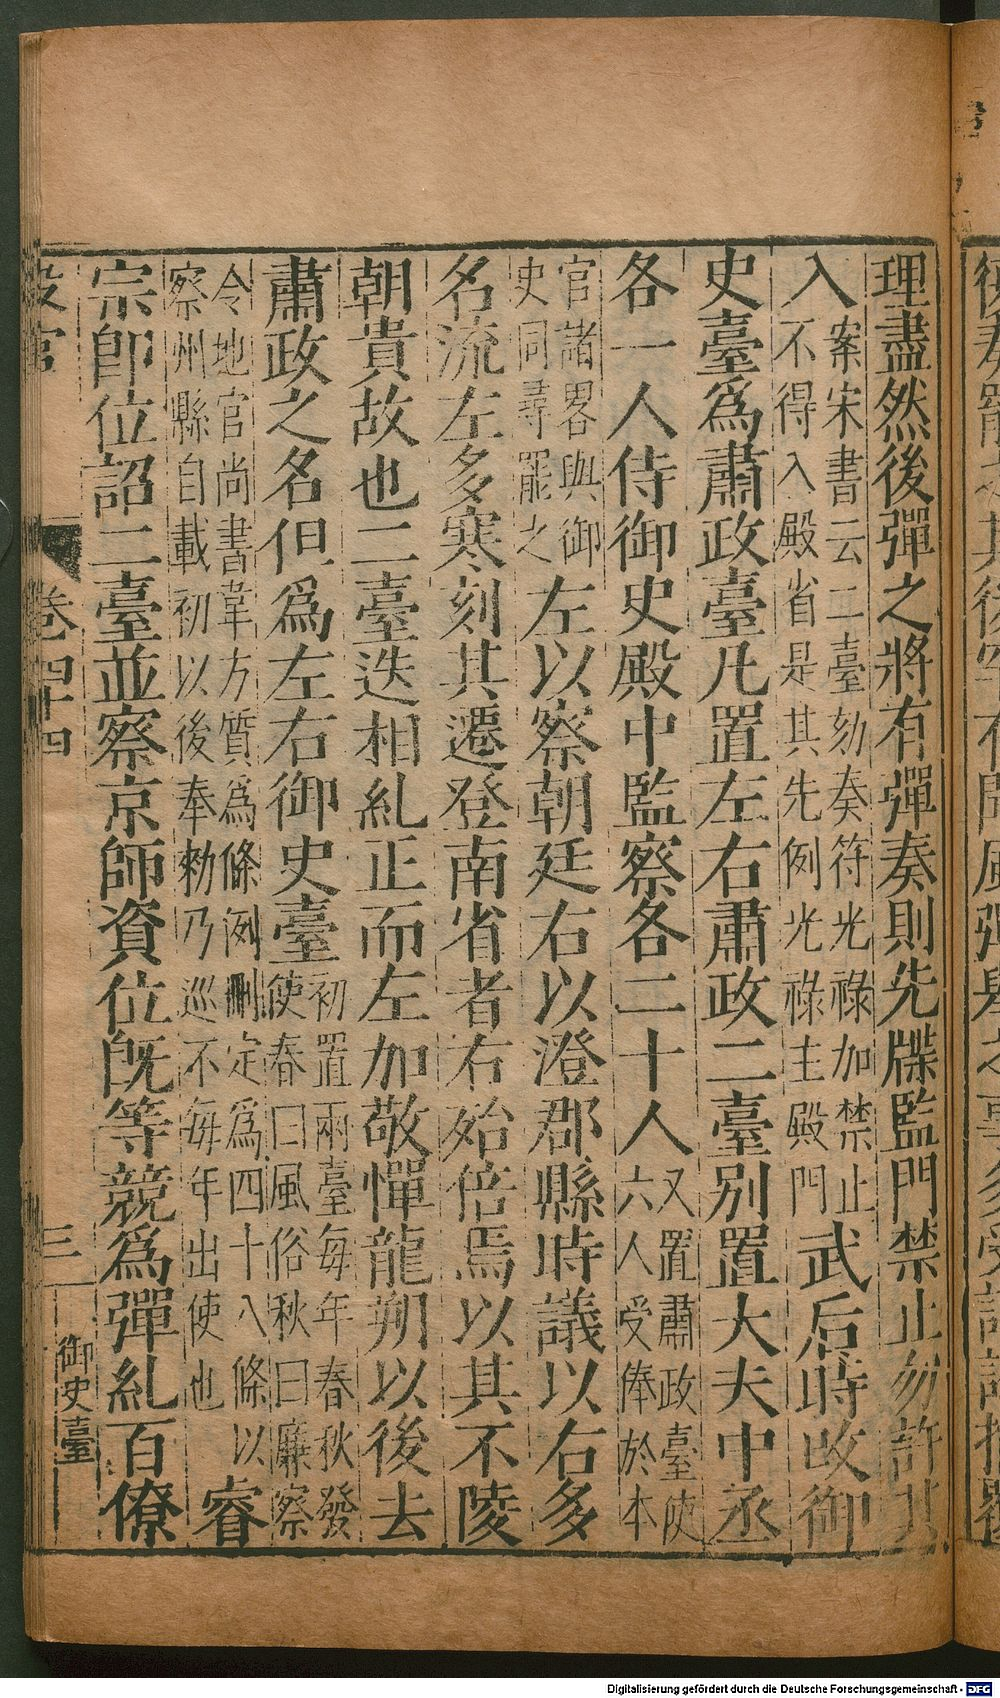 理盡然後彈之將有彈奏則先牒監門禁止勿許其
入案宋書云二臺劾奏符光祿加禁止不得入殿省是其先例光祿主殿門武后時改御
史臺爲肅政臺凡置左右肅政二臺別置大夫中丞
各一人侍御史殿中監察各二十人又置肅政臺使六人受俸於本
官諸畧與御史同尋罷之左以察朝廷右以澄郡縣時議以右多
名流左多寒刻其遷登南省者右始倍焉以其不陵
朝貴故也二臺迭相糺正而左加敬憚龍朔以後去
肅政之名但爲左右御史臺初置兩臺每年春秋發使春曰風俗秋曰廉察
令地官尚書韋方質爲條例刪定爲四十八條以察州縣自載初以後奉勑乃巡不每年出使也睿
宗卽位詔二臺並察京師資位旣等競爲彈糺百僚
卷四十四
三
御史臺
Digitalisierung gefördert durch die Deutsche Forschungsgemeinschaft - DFG